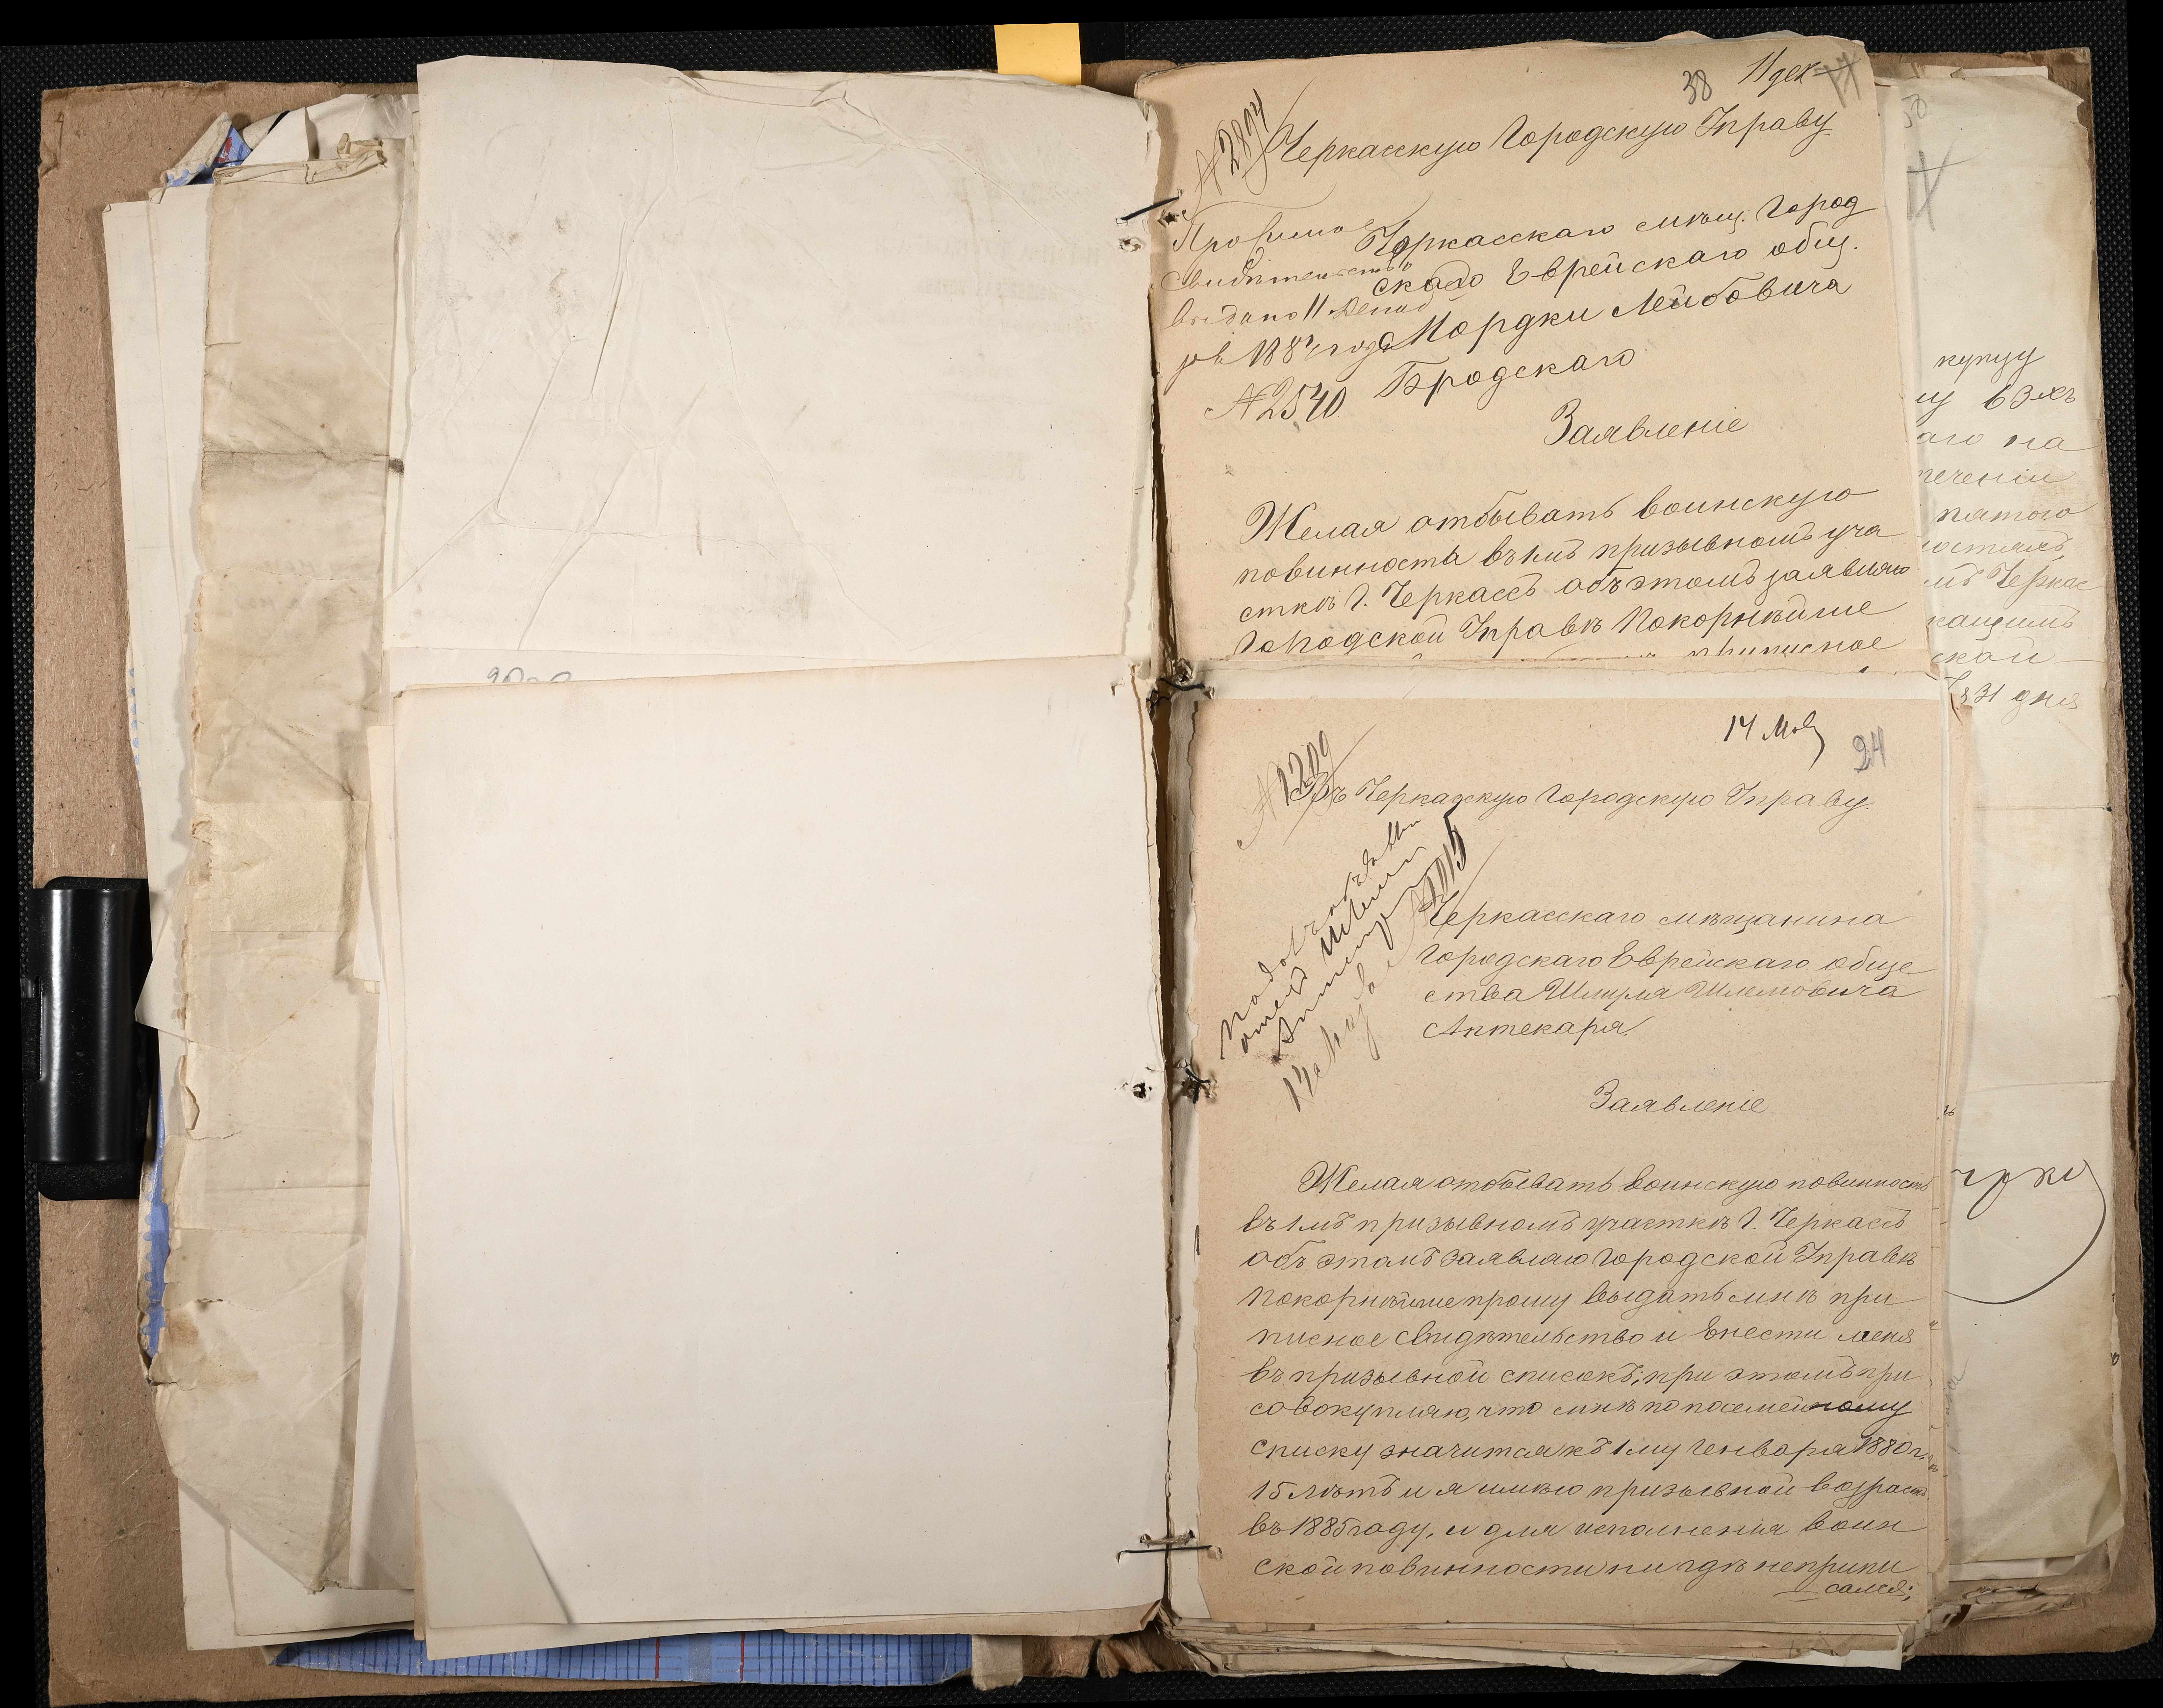 38 11 дек
№ 2894
Черкасскую Городскую Управу
Черкасскаго мѣщ. Город
скаго Еврейскаго общ.
Мордки Лейбовича
Бродскаго
свидѣтельство
выдано 11 Декаб
ря 1884 года
№ 2540
Заявленіе
Желая отбывать воинскую
повинность въ 1мъ призывномъ уча
сткѣ г. Черкассъ объ этомъ заявляю
Городской Управѣ Покорнѣйше
приписное
14 Мая
24
№ 1209
Въ Черкасскую Городскую Управу.
Черкасскаго мѣщанина
Городскаго Еврейскаго обще
ства Шмуля Шлемовича
Аптекаря.
14 Мая
Заявленіе
Желая отбывать воинскую повинность
въ 1мъ призывномъ участкѣ г. Черкассъ
объ этомъ заявляю Городской Управѣ
Покорнѣйше прошу выдать мнѣ при
писное свидѣтельство и внести меня
въ призывной списокъ; при этомъ при
совокупляю, что мнѣ по посемейному
списку значится къ 1му Генваря 1880 г.
15 лѣтъ и я имѣю призывной возрастъ
въ 1885 году, и для исполнения воин
ской повинности ни гдѣ неприпи
сался;
купцу
аго на
течении
пятого
Черкас
31 дня